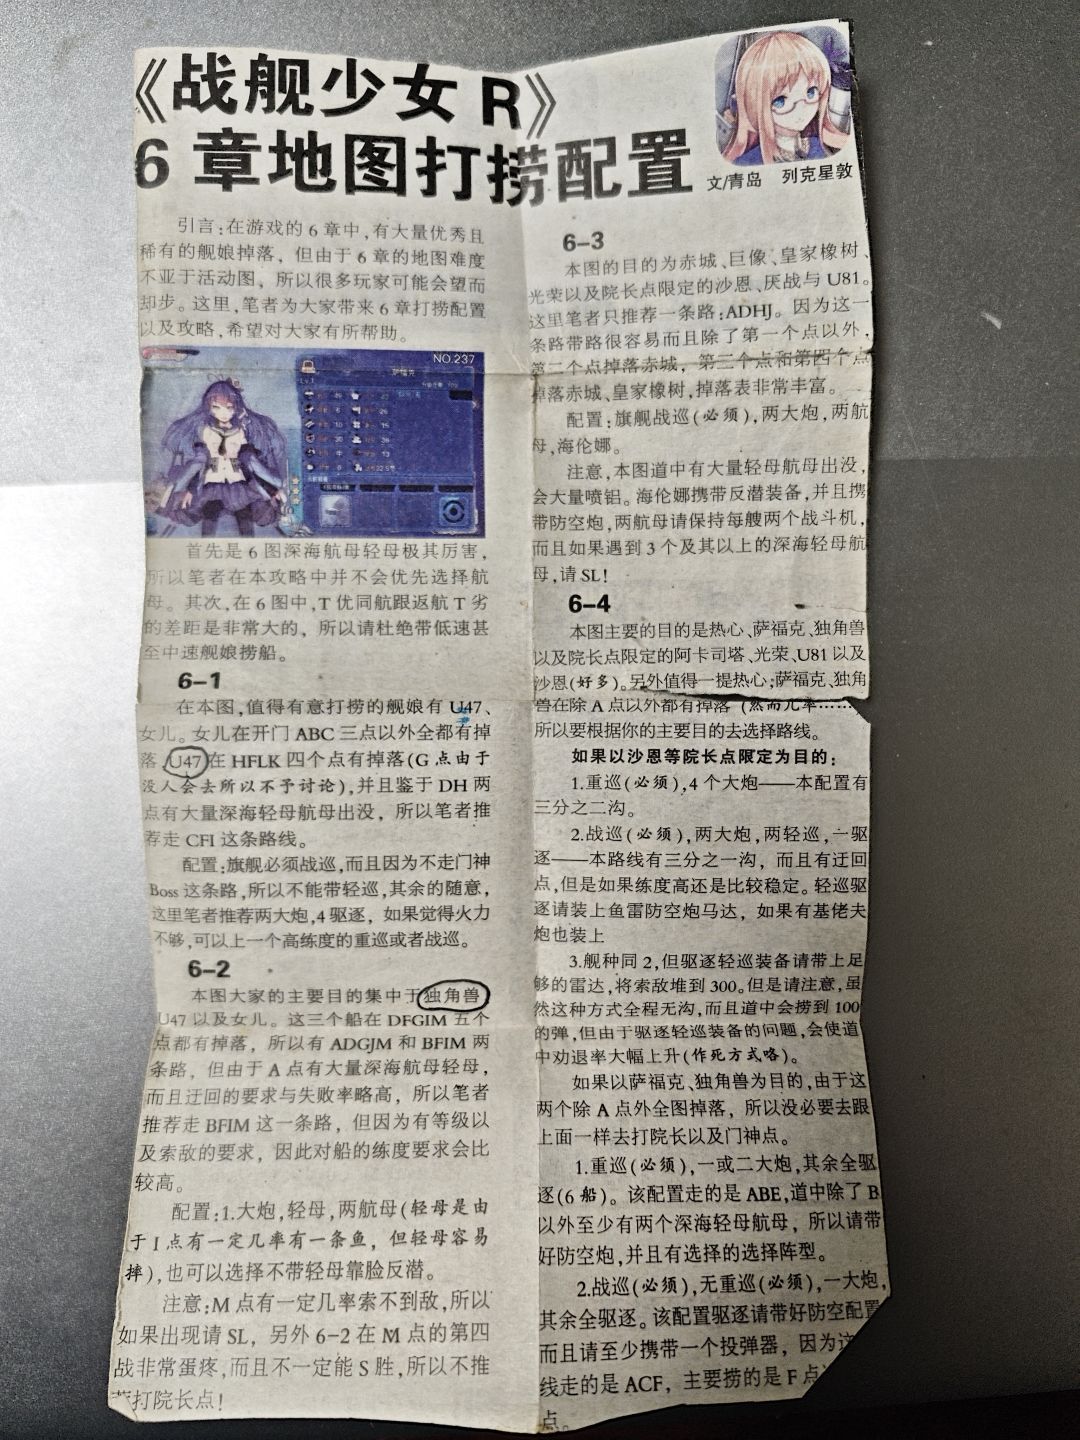 《战舰少女 R》
6 章地图打捞配置
文/青岛 列克星敦
引言:在游戏的 6 章中,有大量优秀且
稀有的舰娘掉落，但由于 6 章的地图难度
不亚于活动图，所以很多玩家可能会望而
却步。这里,笔者为大家带来 6 章打捞配置
以及攻略,希望对大家有所帮助。
NO.237
萨福克
首先是 6 图深海航母轻母极其厉害，
所以笔者在本攻略中并不会优先选择航
母。其次,在 6 图中,T 优同航跟返航 T 劣
的差距是非常大的，所以请杜绝带低速甚
至中速舰娘捞船。
6-1
在本图,值得有意打捞的舰娘有 U47、
女儿。女儿在开门 ABC 三点以外全都有掉
落,U47 在 HFLK 四个点有掉落(G 点由于
没人会去所以不予讨论),并且鉴于 DH 两
点有大量深海轻母航母出没，所以笔者推
荐走 CFI 这条路线。
配置:旗舰必须战巡,而且因为不走门神
Boss 这条路,所以不能带轻巡,其余的随意,
这里笔者推荐两大炮,4 驱逐，如果觉得火力
不够,可以上一个高练度的重巡或者战巡。
6-2
本图大家的主要目的集中于独角兽
U47 以及女儿。这三个船在 DFGIM 五个
点都有掉落，所以有 ADGJM 和 BFIM 两
条路，但由于 A 点有大量深海航母轻母,
而且迂回的要求与失败率略高，所以笔者
推荐走 BFIM 这一条路，但因为有等级以
及索敌的要求，因此对船的练度要求会比
较高。
配置:1.大炮,轻母,两航母(轻母是由
于 I 点有一定几率有一条鱼，但轻母容易
摔),也可以选择不带轻母靠脸反潜。
注意:M 点有一定几率索不到敌,所以
如果出现请 SL，另外 6-2 在 M 点的第四
战非常蛋疼,而且不一定能 S 胜,所以不推
荐打院长点!
6-3
本图的目的为赤城、巨像、皇家橡树、
光荣以及院长点限定的沙恩、厌战与 U81。
这里笔者只推荐一条路:ADHJ。因为这一
条路带路很容易而且除了第一个点以外，
第二个点掉落赤城，第三个点和第四个点
掉落赤城、皇家橡树,掉落表非常丰富。
配置:旗舰战巡(必须),两大炮,两航
母,海伦娜。
注意,本图道中有大量轻母航母出没,
会大量喷铝。海伦娜携带反潜装备,并且携
带防空炮,两航母请保持每艘两个战斗机,
而且如果遇到 3 个及其以上的深海轻母航
母,请 SL!
6-4
本图主要的目的是热心、萨福克、独角兽
以及院长点限定的阿卡司塔、光荣、U81 以及
沙恩(好多)。另外值得一提热心;萨福克、独角
兽在除 A 点以外都有掉落 (然而几率……
所以要根据你的主要目的去选择路线。
如果以沙恩等院长点限定为目的:
1.重巡(必须),4 个大炮——本配置有
三分之二沟。
2.战巡(必须),两大炮,两轻巡,一驱
逐——本路线有三分之一沟，而且有迂回
点,但是如果练度高还是比较稳定。轻巡驱
逐请装上鱼雷防空炮马达，如果有基佬夫
炮也装上
3.舰种同 2,但驱逐轻巡装备请带上足
够的雷达,将索敌堆到 300。但是请注意,虽
然这种方式全程无沟,而且道中会捞到 100
的弹,但由于驱逐轻巡装备的问题,会使道
中劝退率大幅上升(作死方式略)。
如果以萨福克、独角兽为目的,由于这
两个除 A 点外全图掉落，所以没必要去跟
上面一样去打院长以及门神点。
1.重巡(必须),一或二大炮,其余全驱
逐(6 船)。该配置走的是 ABE,道中除了 B
以外至少有两个深海轻母航母，所以请带
好防空炮,并且有选择的选择阵型。
2.战巡(必须),无重巡(必须),一大炮,
其余全驱逐。该配置驱逐请带好防空配置
而且请至少携带一个投弹器，因为这
线走的是 ACF，主要捞的是 F 点
点。